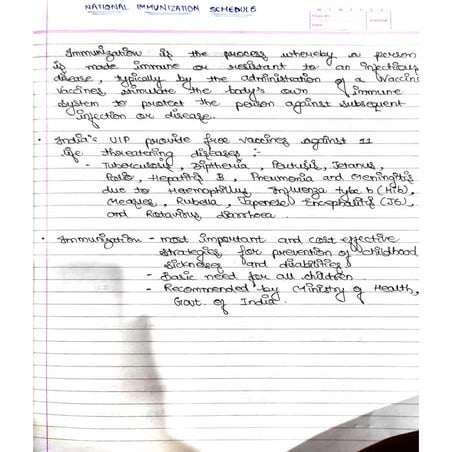 NATIONAL IMMUNIZATION SCHEDULE
Immunization is the process whereby a person
is made immune or resistant to an infectious
disease, typically by the administration of a vaccine.
Vaccines, stimulate the body's own immune
system to protect the person against subsequent
infection or disease.
• India's UIP provide free vaccines against 11
life threatening diseases :-
- Tuberculosis, Diptheria, Pertusis, Tetanus,
Polio, Hepatitis B, Pneumonia and Meningitis
due to Haemophillus Influenza type b (Hib),
Measles, Rubella, Japanese Encephalitis (JE),
and Rotavirus diarrhoea.
• Immunization - most important and cost effective
strategies for prevention of childhood
sicknesses and disabilities.
- Basic need for all children.
- Recommended by Ministry of Health,
Govt. of India.